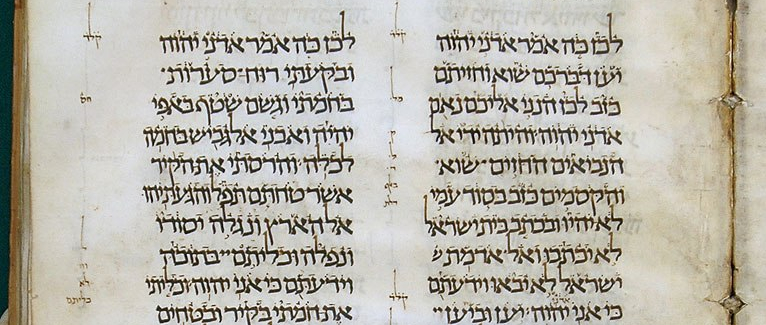 לכן כה אמר אדני יהוה
יען דברכם שוא וחזיתם
כזב לכן הנני אליכם נאם
אדני יהוה והיתה ידי אל
הנביאים החזים שוא
והקסמים כזב בסוד עמי
לא יהיו ובכתב בית ישראל
לא יכתבו ואל אדמת
ישראל לא יבאו וידעתם
כי אני יהוה יען וביען
לכן כה אמר אדני יהוה
ובקעתי רוח סערות
בחמתי וגשם שטף באפי
יהיה ואבני אלגביש בחמה
לכלה והרסתי את הקיר
אשר טחתם תפל והגעתיהו
אל הארץ ונגלה יסודו
ונפלה וכליתם בתוכה
וידעתם כי אני יהוה וכליתי
את חמתי בקיר ובטחים